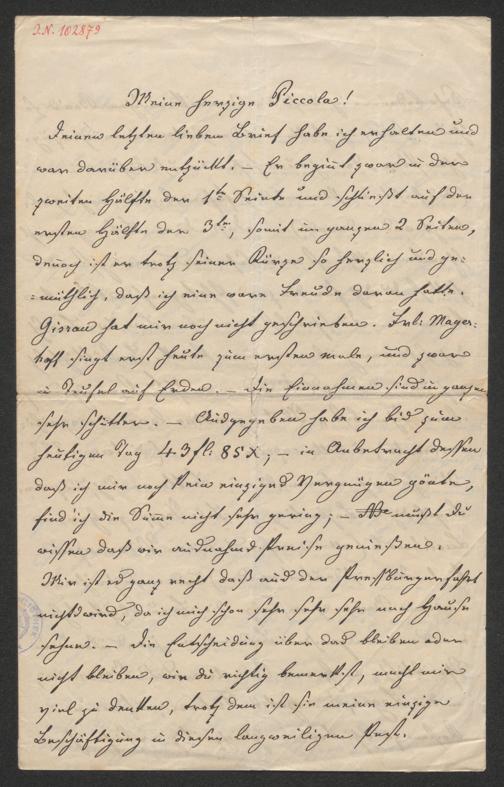 I.N. 102879
Meine herzige Piccola!
Deinen letzten lieben Brief habe ich erhalten und
war darüber entzückt. – Er beginnt zwar in der
zweiten Hälfte der 1ten Seite und schließt auf der
ersten Hälfte der 3ten, somit im ganzen 2 Seiten,
dennoch ist er trotz seiner Kürze so herzlich und ge=
=müthlich, daß ich eine ware Freude daran hatte.
hat mir noch nicht geschrieben. Frl: Mayer=
hoff singt erst heute zum ersten male, und zwar
in Teufel auf Erden. – Die Einnahmen sind im ganzen
sehr schütter. – Ausgegeben habe ich bis zum
heutigen Tag 43 fl: 85 x; – in Anbetracht dessen
daß ich mir noch kein einziges Vergnügen gönte,
find ich die Summe nicht sehr gering; – mußt du
wissen daß wir ausnahms-Preise genießen.
Mir ist es ganz recht daß aus der Pressburgerfahrt
nichts wird, da ich mich schon sehr sehr sehr nach Hause
sehne. – Die Entscheidung über das bleiben oder
nicht bleiben, wie du richtig bemerkst, macht mir
viel zu denken, trotz dem ist sie meine einzige
Beschäftigung in diesem langweiligen Pest.